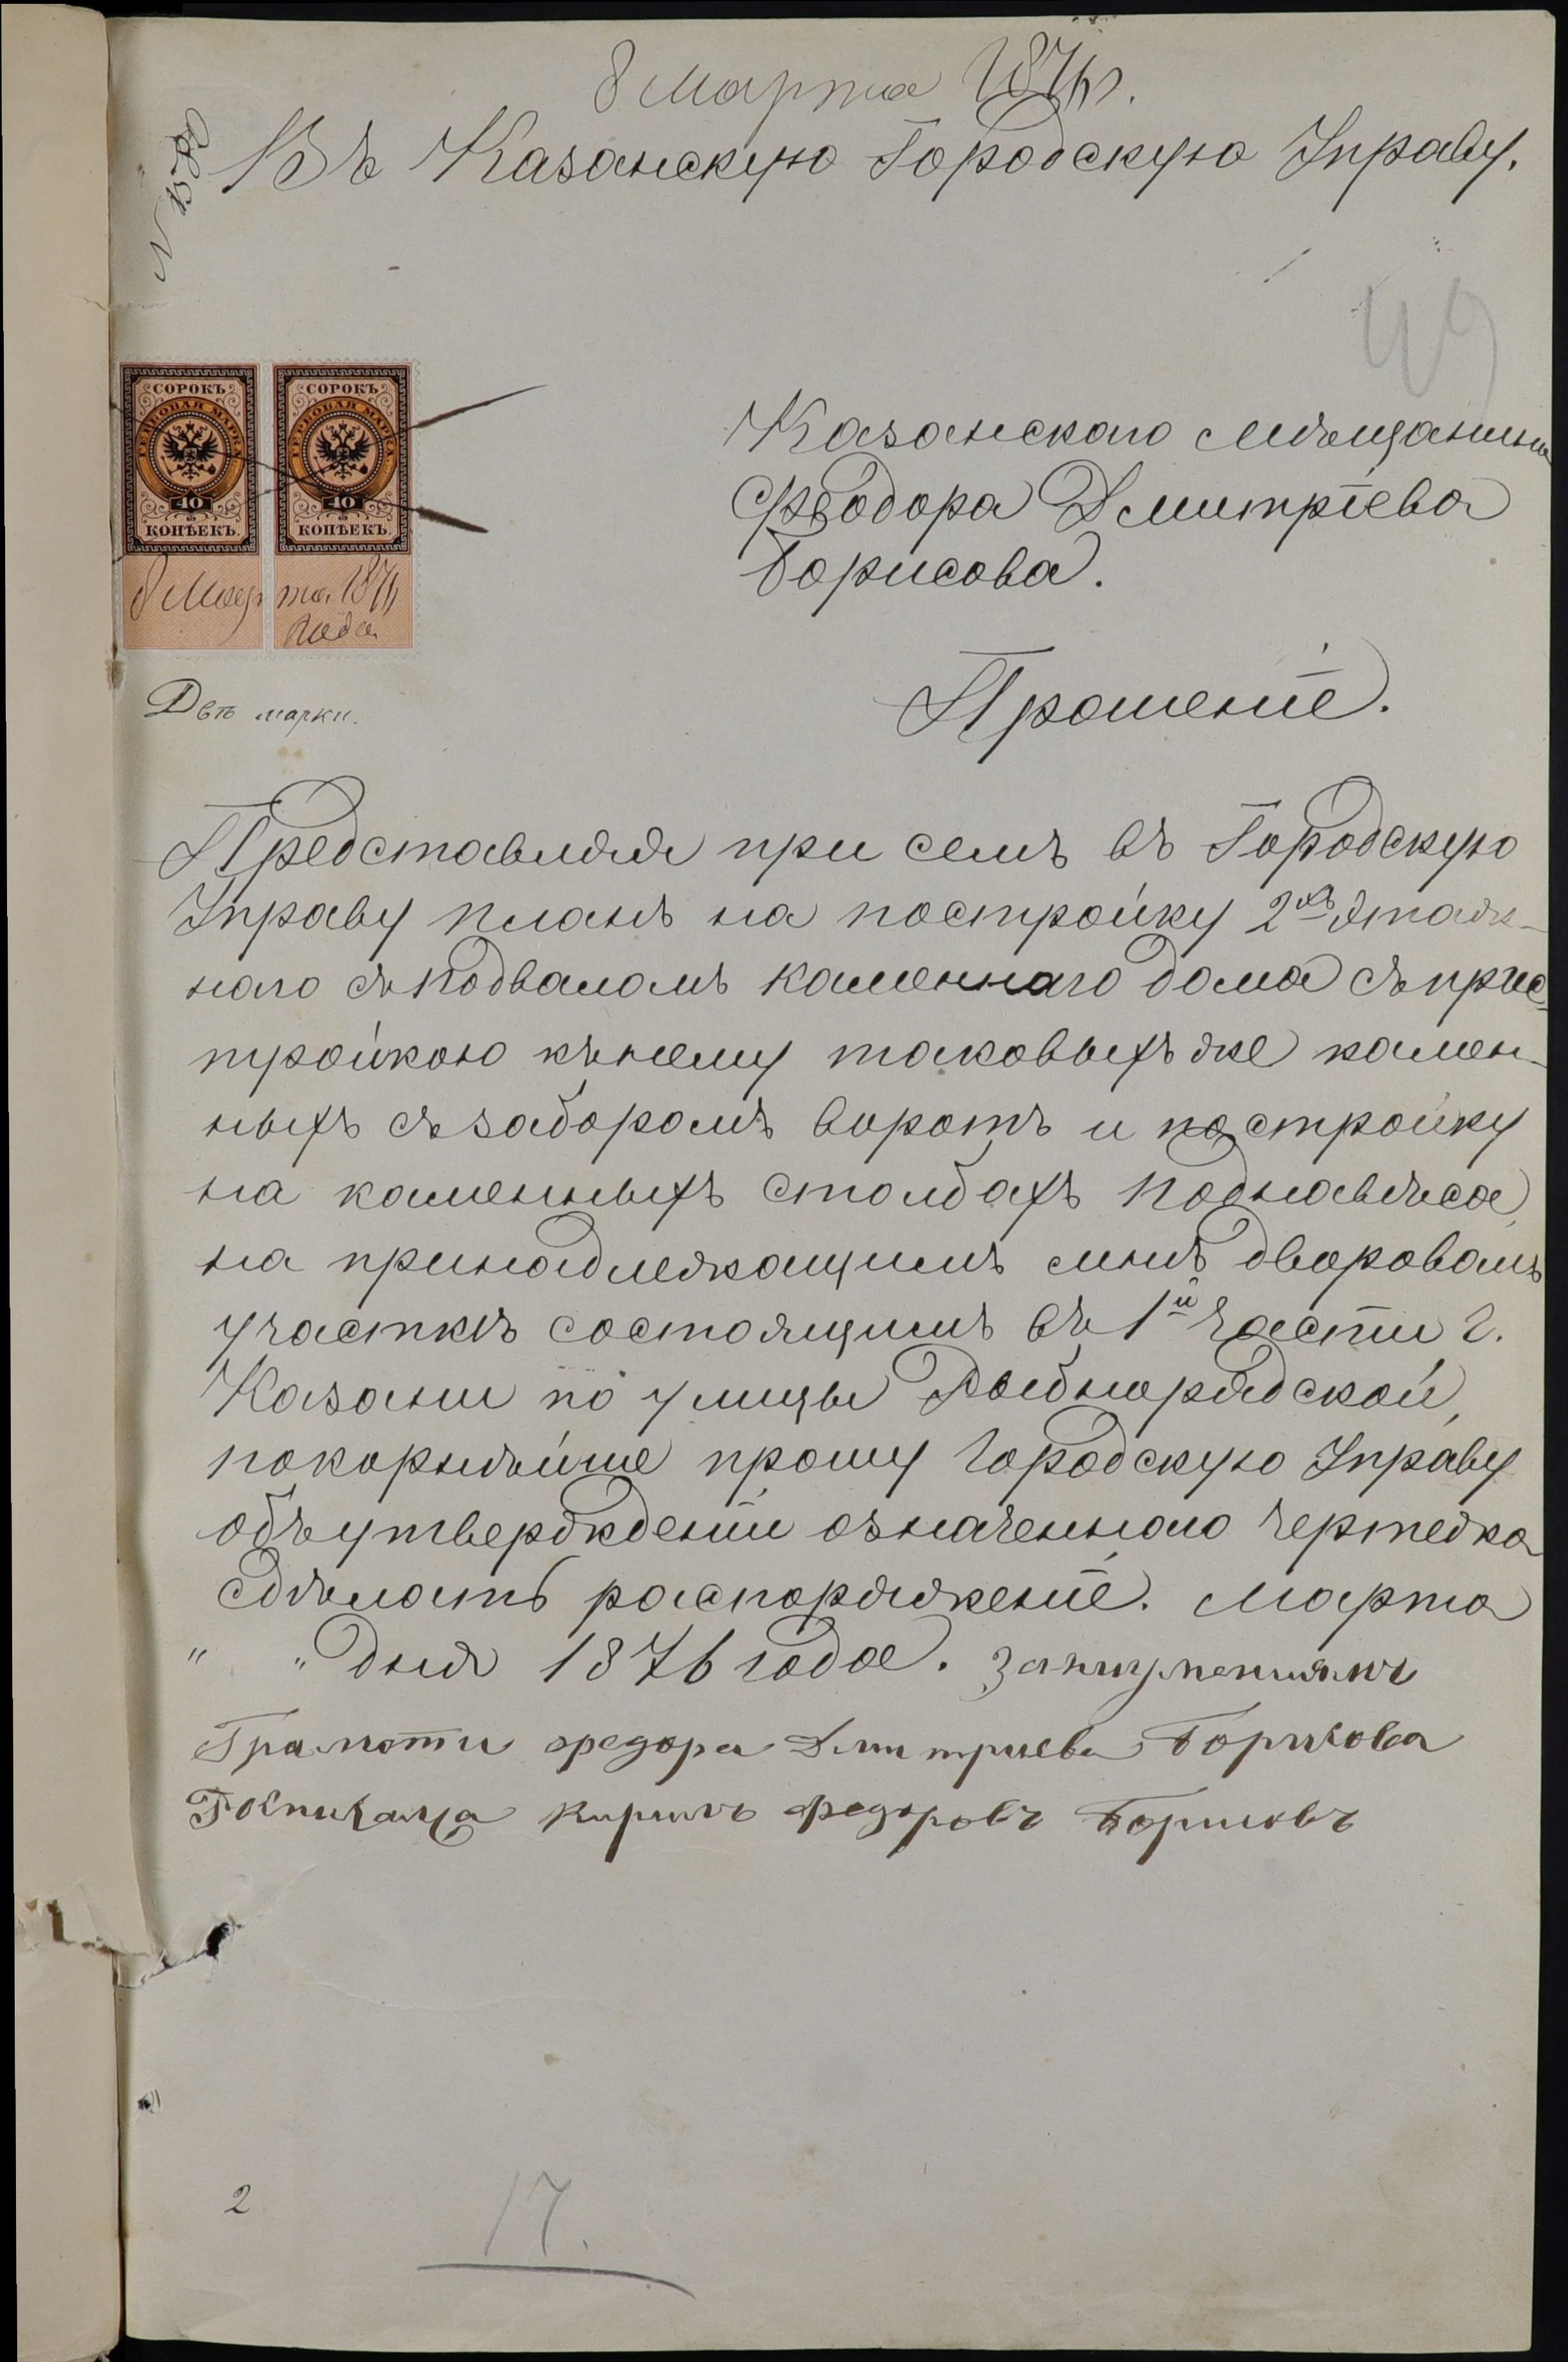 8 Марта 1876 г.
N 1580
Въ Казанскую Городскую Управу.
49
СОРОКЪ СОРОКЪ
ГЕРБОВАЯ МАРКА ГЕРБОВАЯ МАРКА
40 40
КОПѢЕКЪ. КОПѢЕКЪ.
8 Марта 1876
года
Двѣ марки.
Казанскаго мѣщанина
Ѳеодора Дмитріева
Борисова.
Прошеніе.
Представляя при семъ въ Городскую
Управу планъ на постройку 2хъ этаж-
наго съ подваломъ каменнаго дома съ прис-
тройкою къ нему таковыхъ же камен-
ныхъ съ заборомъ воротъ и постройку
на каменныхъ столбахъ поднавѣса,
на принадлежащимъ мнѣ дворовамъ
участкѣ состоящимъ въ 1й части г.
Казани по улицы Рыбнорядской,
покорнѣйше прошу Городскую Управу
объ утвержденіи означеннаго чертежа
сдѣлать распоряженіе. Марта
" " дня 1876 года.
Грамоти федора Дмитриева Борисова
Кирилъ федоровъ Борисовъ
2
17.